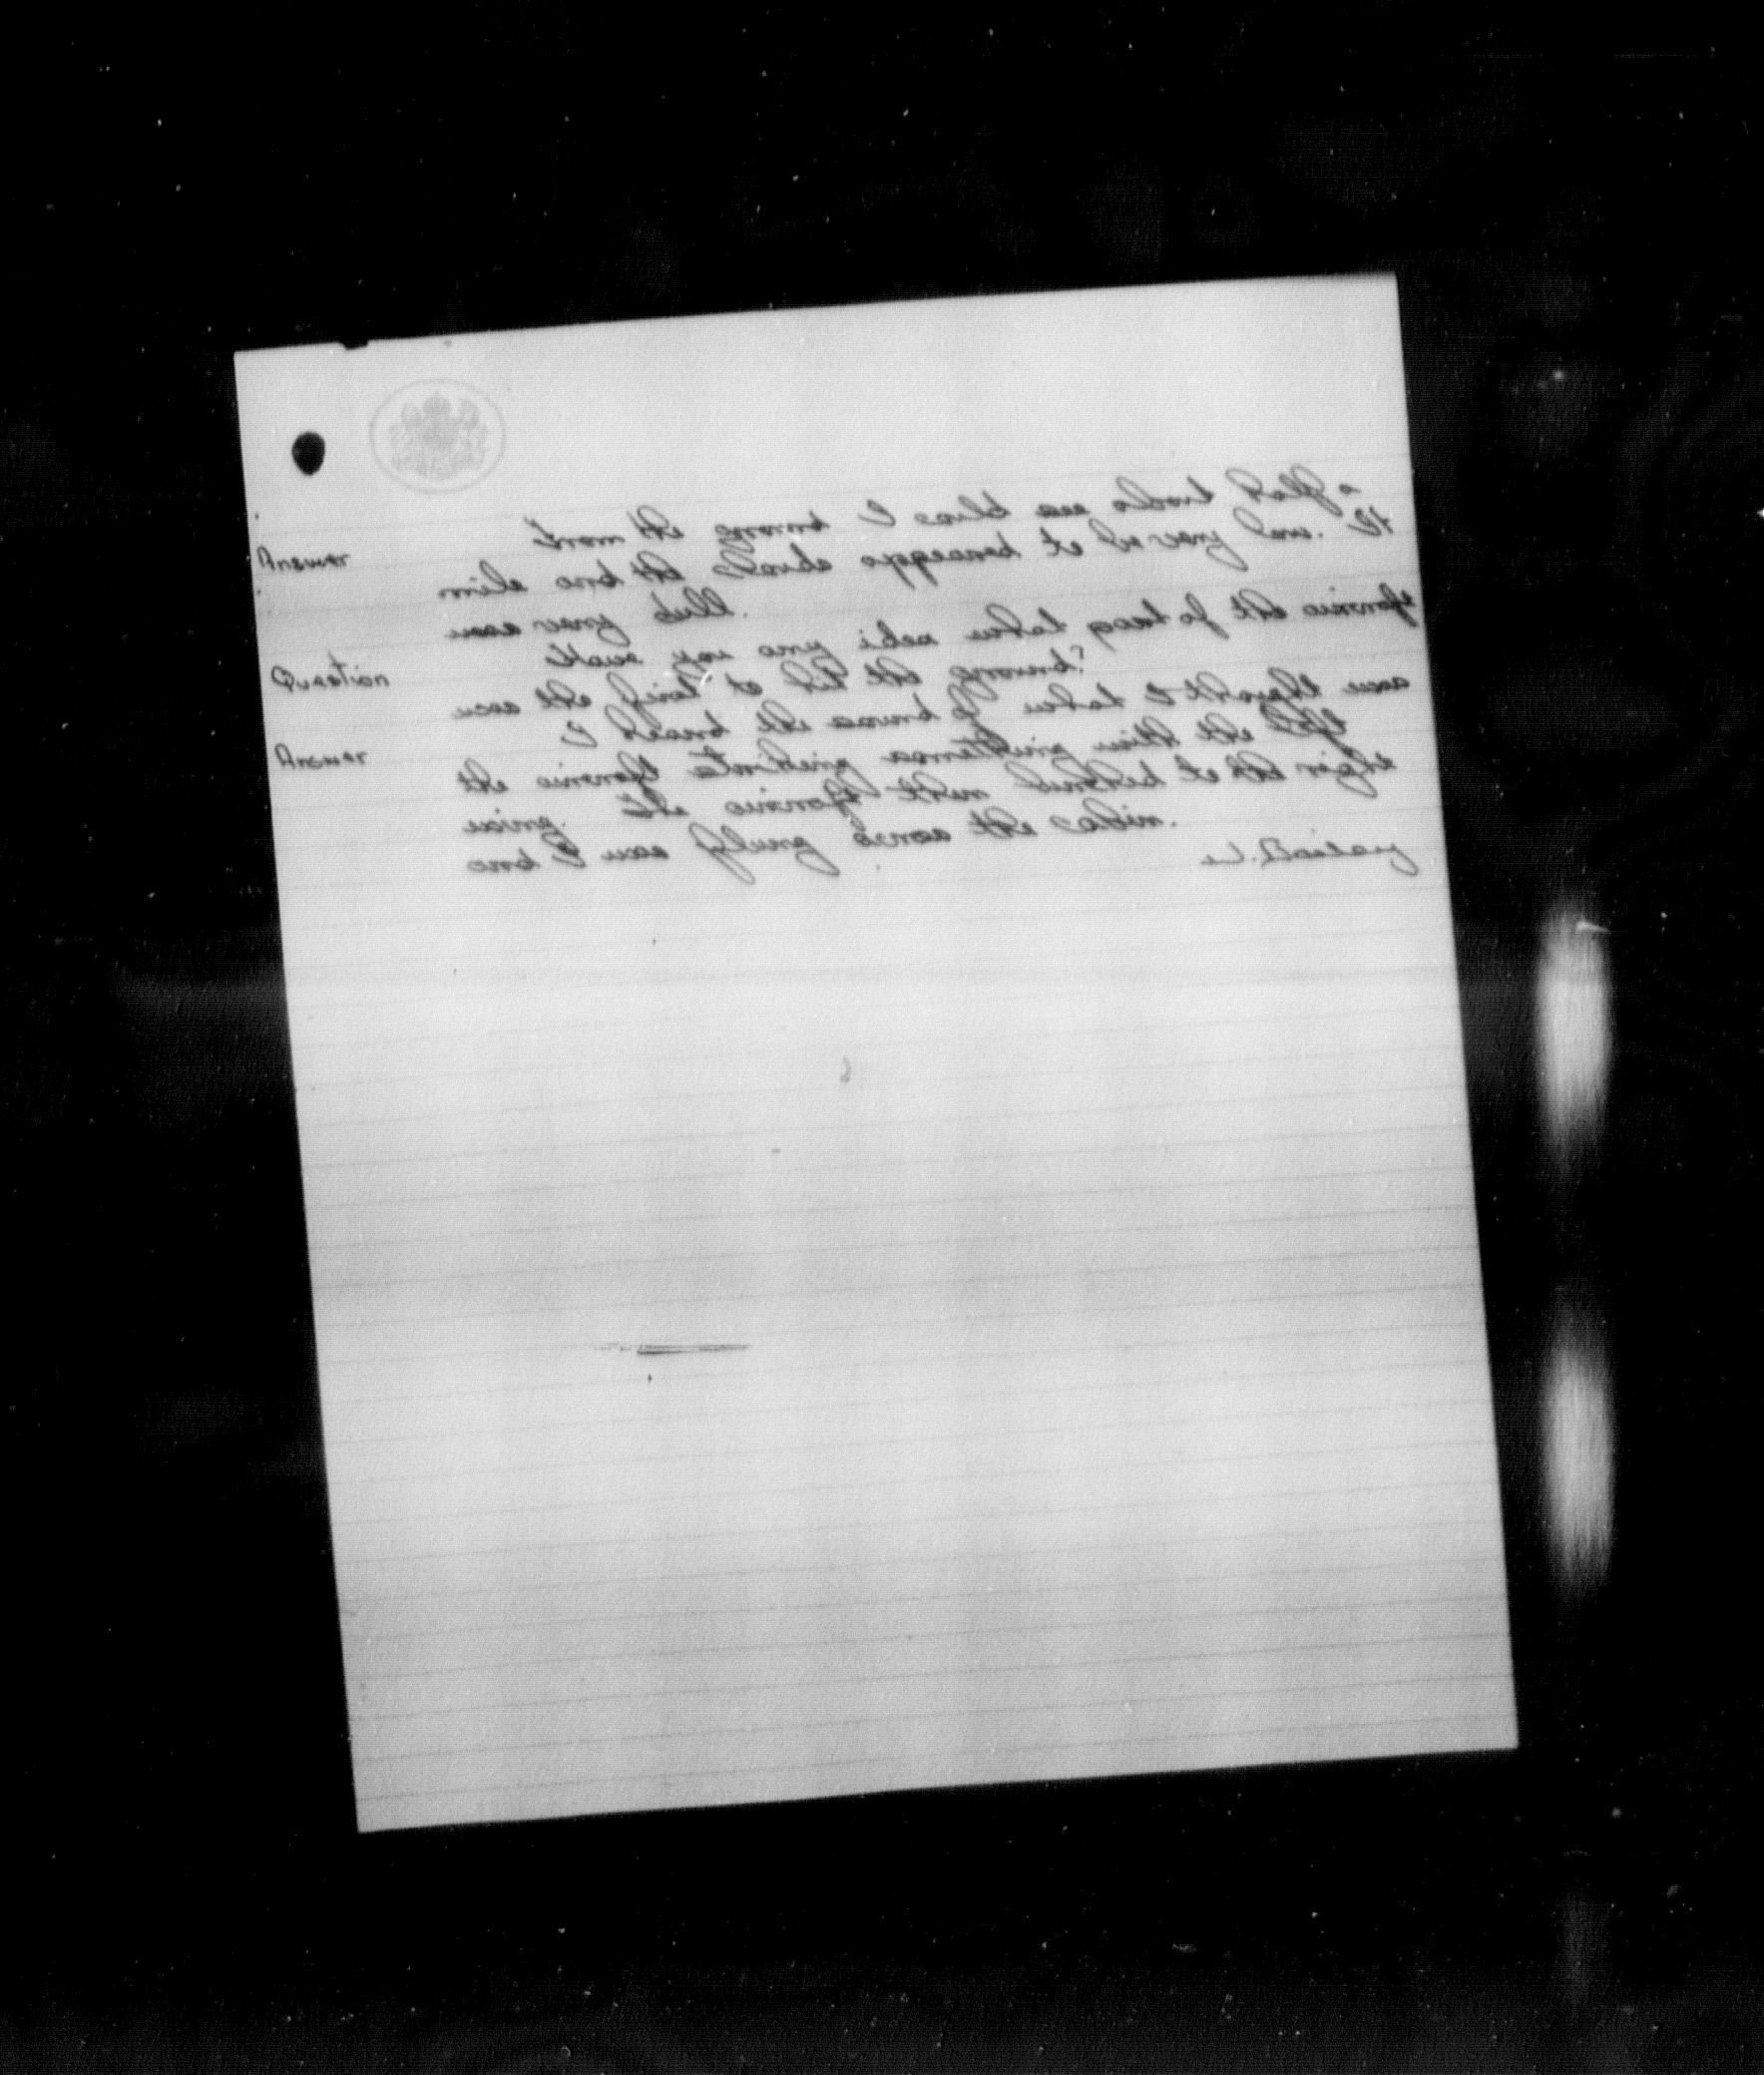 Answer From the ground I could see about half a
mile and the clouds appeared to be very low. It
was very dull.
Question Have you any idea what part of the aircraft
was the first to hit the ground?
Answer I heard the sound of what I thought was
the aircraft striking something with the left
wing. The aircraft then lurched to the right
and I was flung across the cabin.
Bailey